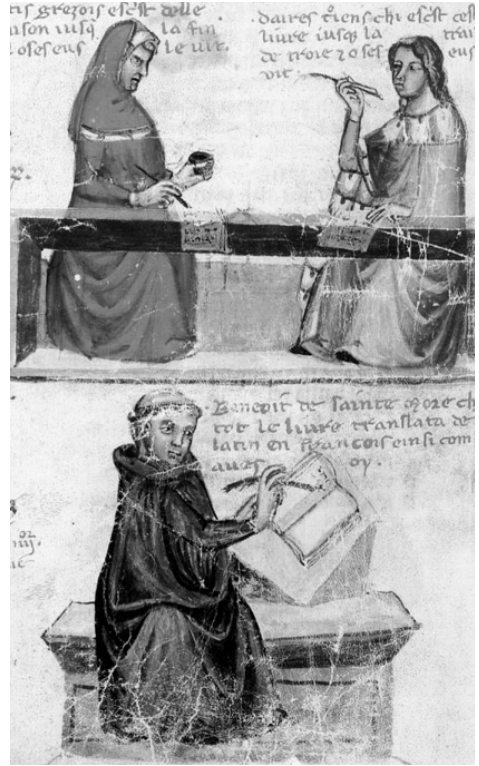 tis grezois escst delle
ison iusq̃ la fin
oses eus le uit.
daires t̃iens chi escst cest
liure iusq̃ la trai
de troie 2 o ses eus
uit
Beneoit de sainte more ch
tot le liure translata de
latin en francois einsi com
aues oy.